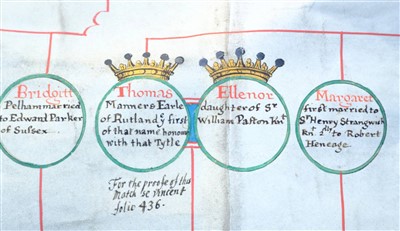 Bridgitt
Pelham married
to Edward Parker
of Sussex
Thomas
Manners Earle
of Rutland yᵉ first
of that name honored
with that Tytle
Ellenor
daughter of Sʳ
William Paston Knᵗ
Margaret
first married to
Sʳ Henry Strangwish
Knᵗ 2ˡʸ to Robert
Heneage.
For the proofe of this
Match se Vincent
folio 436.